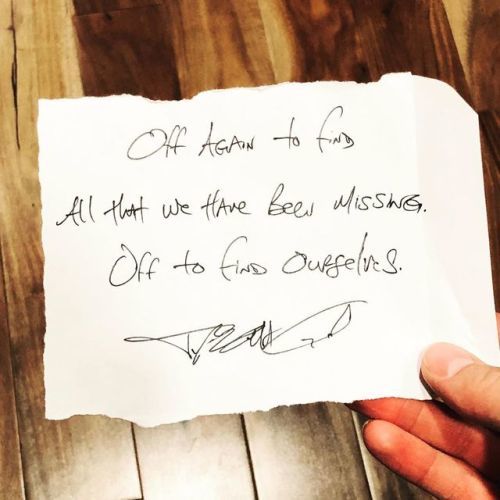 Off AGAIN to find
All that we HAve Been MissING.
Off to find Ourselves.